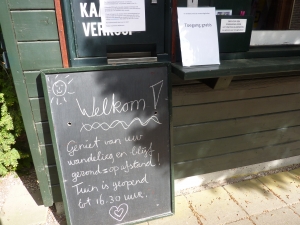 KA
VERKOOP
Toegang gratis
Welkom!
Geniet van uw
wandeling en blijf
gezond = op afstand!
Tuin is geopend
tot 16.30 uur.